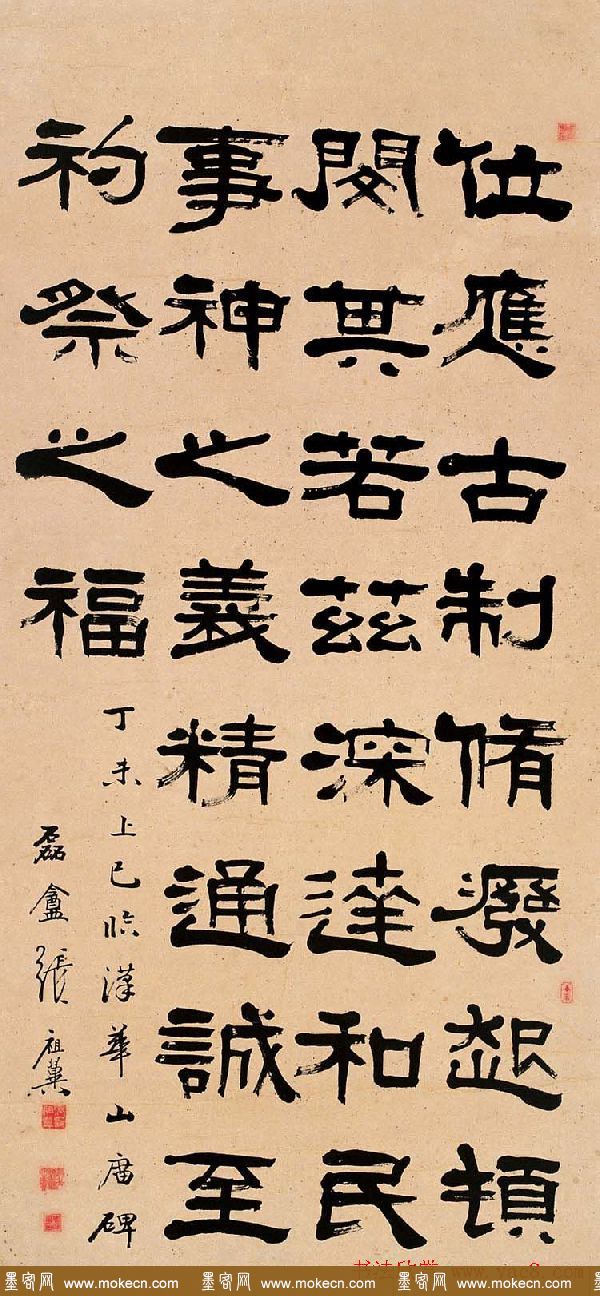 位應古制脩癈起頓
閔其若茲深達和民
事神之義精通誠至
礿祭之福
丁未上巳臨漢華山廟碑
磊盦張祖翼
書法欣賞 www.yac8.com
墨客网 www.mokecn.com 墨客网 www.mokecn.com 墨客网 www.mokecn.com